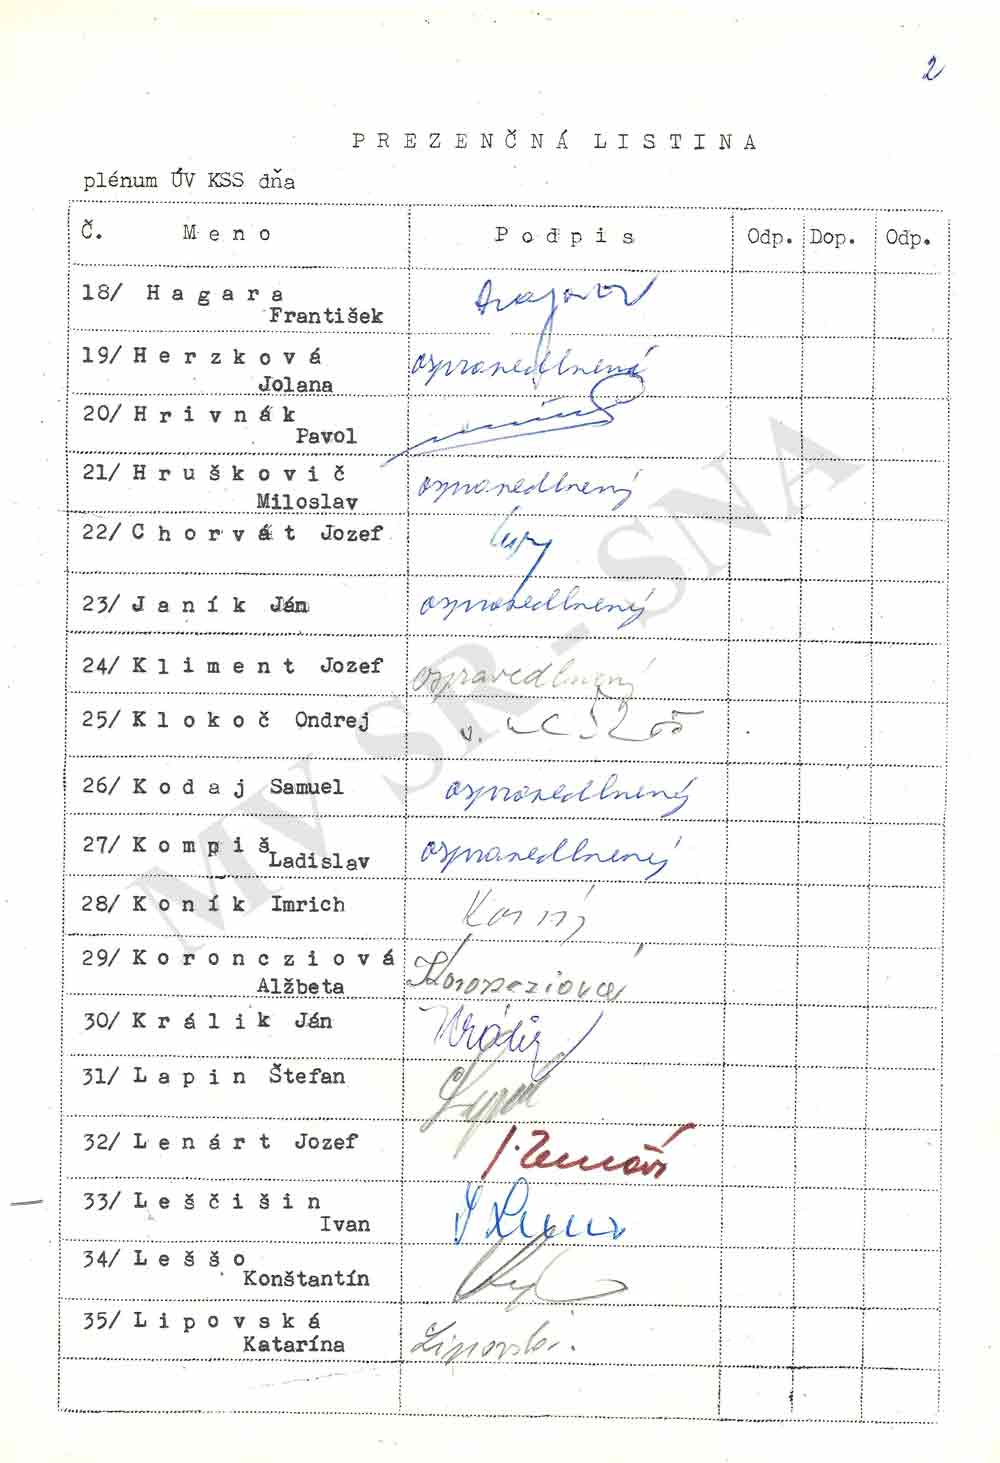 2
PREZENČNÁ LISTINA
plénum ÚV KSS dňa
Č. Meno Podpis Odp. Dop. Odp.
18/ Hagara
František
19/ Herzková ospravedlnená
Jolana
20/ Hrivnák
Pavol
21/ Hruškovič ospravedlnený
Miloslav
22/ Chorvát Jozef
23/ Janík Ján ospravedlnený
24/ Kliment Jozef ospravedlnený
25/ Klokoč Ondrej
26/ Kodaj Samuel ospravedlnený
27/ Kompiš ospravedlnený
Ladislav
28/ Koník Imrich
29/ Koroncziová Koroncziová
Alžbeta
30/ Králik Ján Králik
31/ Lapin Štefan
32/ Lenárt Jozef J. Lenárt
33/ Leščišin
Ivan
34/ Leššo
Konštantín
35/ Lipovská Lipovská
Katarína
MV SR - SNA